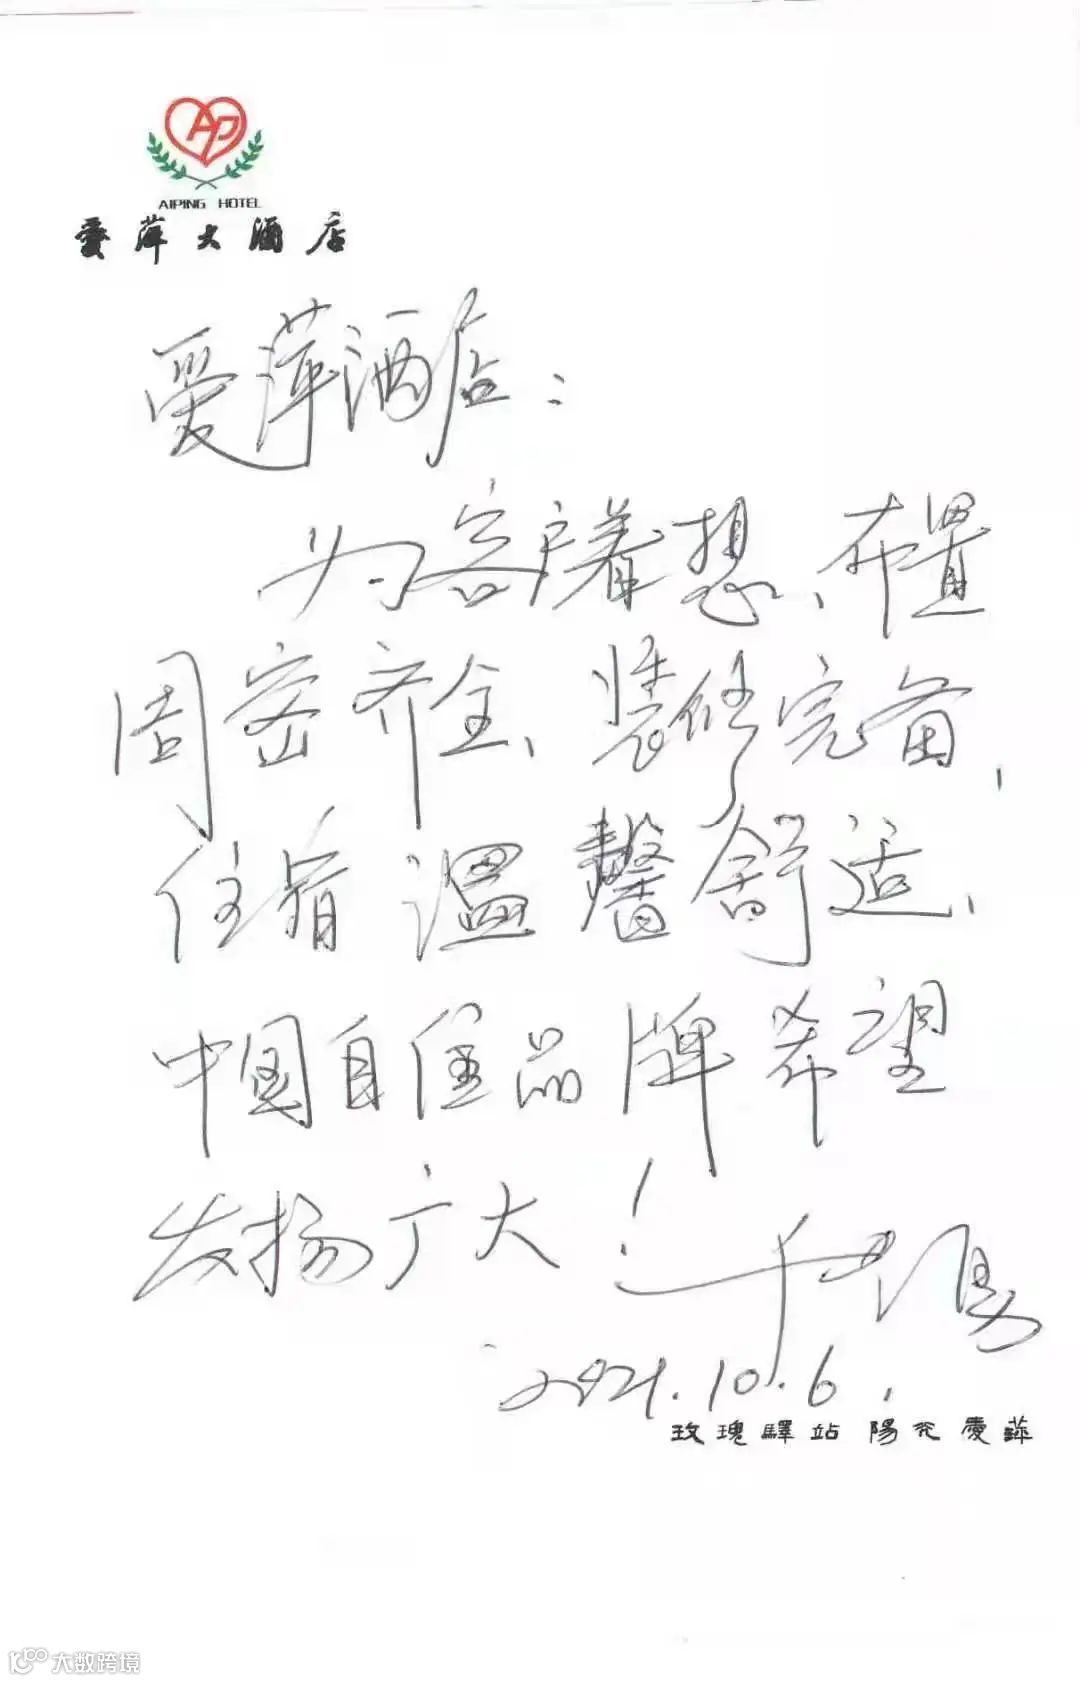 AP
AIPING HOTEL
愛萍大酒店
爱萍酒店：
为客户着想、布置
周密齐全、装修完备、
住宿温馨舒适、
中国自住品牌希望
发扬广大！
2021.10.6.
玫瑰驛站 陽光愛萍
大数跨境